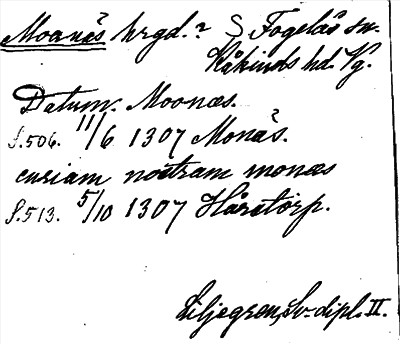 Moanäs hrgd.? S Fogelås sn.
Kåkinds hd. Vg.
Datum. Moonæs.
S.506. 11/6 1307 Monäs.
curiam nostram monæs
S.513. 5/10 1307 Håretorp.
Liljegren, Sv. dipl. II.